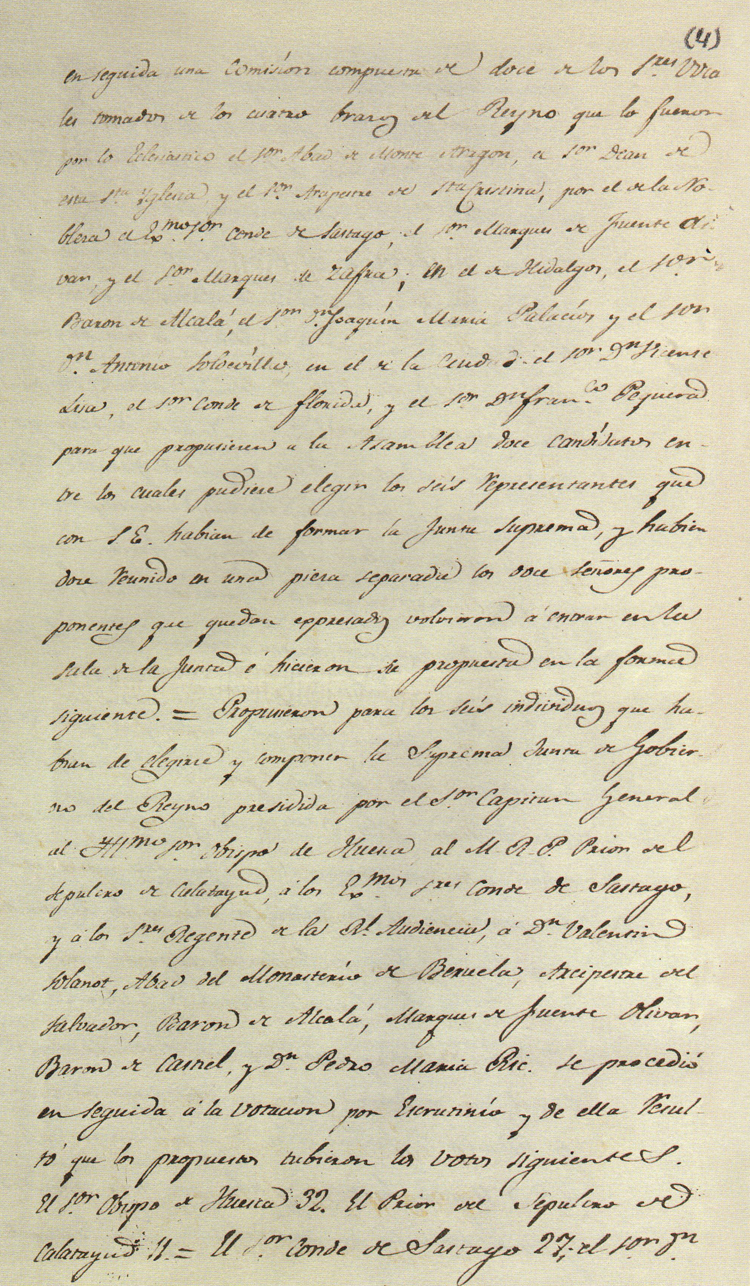 (4)
en seguida una Comisión compuesta de doce de los S.res Voca
les tomados de los cuatro brazos del Reyno que lo fueron
por lo Eclesiastico el S.or Abad de Monte Aragon, el S.or Dean de
esta S.ta Yglesia y el S.or Arcipestre de S.ta Cristina, por el de la No-
bleza el Ex.mo S.or Conde de Sastago, el S.or Marques de Fuente Oli-
van, y el S.or Marques de Zafra; en el de Hidalgos, el S.or
Baron de Alcalá, el S.or D.n Joaquín Maria Palacios y el S.or
D.n Antonio Soldevilla, en el de la Ciud.d el S.or D.n Vicente
Lisa, el S.or Conde de Florida, y el S.or D.n Fran.co Peguera
para que propusiesen a la Asamblea doce candidatos en-
tre los cuales pudiese elegir los seis representantes que
con S.E. habian de formar la Junta Suprema, y habien
dose reunido en una pieza separada los doce señores pro-
ponentes que quedan expresados volvieron á entrar en la
sala de la Junta é hicieron su propuesta en la forma
siguiente. = Propusieron para los seis individuos que ha-
bian de elegirse y componer la Suprema Junta de Gobier-
no del Reyno presidida por el S.or Capitan General
al Yll.mo S.or Obispo de Huesca al M. R. P. Prior del
Sepulcro de Calatayud, á los Ex.mos S.res Conde de Sastago,
y á los S.res Regente de la R.l Audiencia, á D.n Valentin
Solanot, Abad del Monasterio de Beruela, Arcipestre del
Salvador, Baron de Alcalá, Marques de Fuente Olivan,
Baron de Castiel, y D.n Pedro Maria Ric. se procedió
en seguida á la votacion por Escrutinio y de ella resul-
tó que los propuestos tubieron los votos siguientes.
El S.or Obispo de Huesca 32. El Prior del Sepulcro de
Calatayud = El S.or Conde de Sastago 27; el S.or D.n